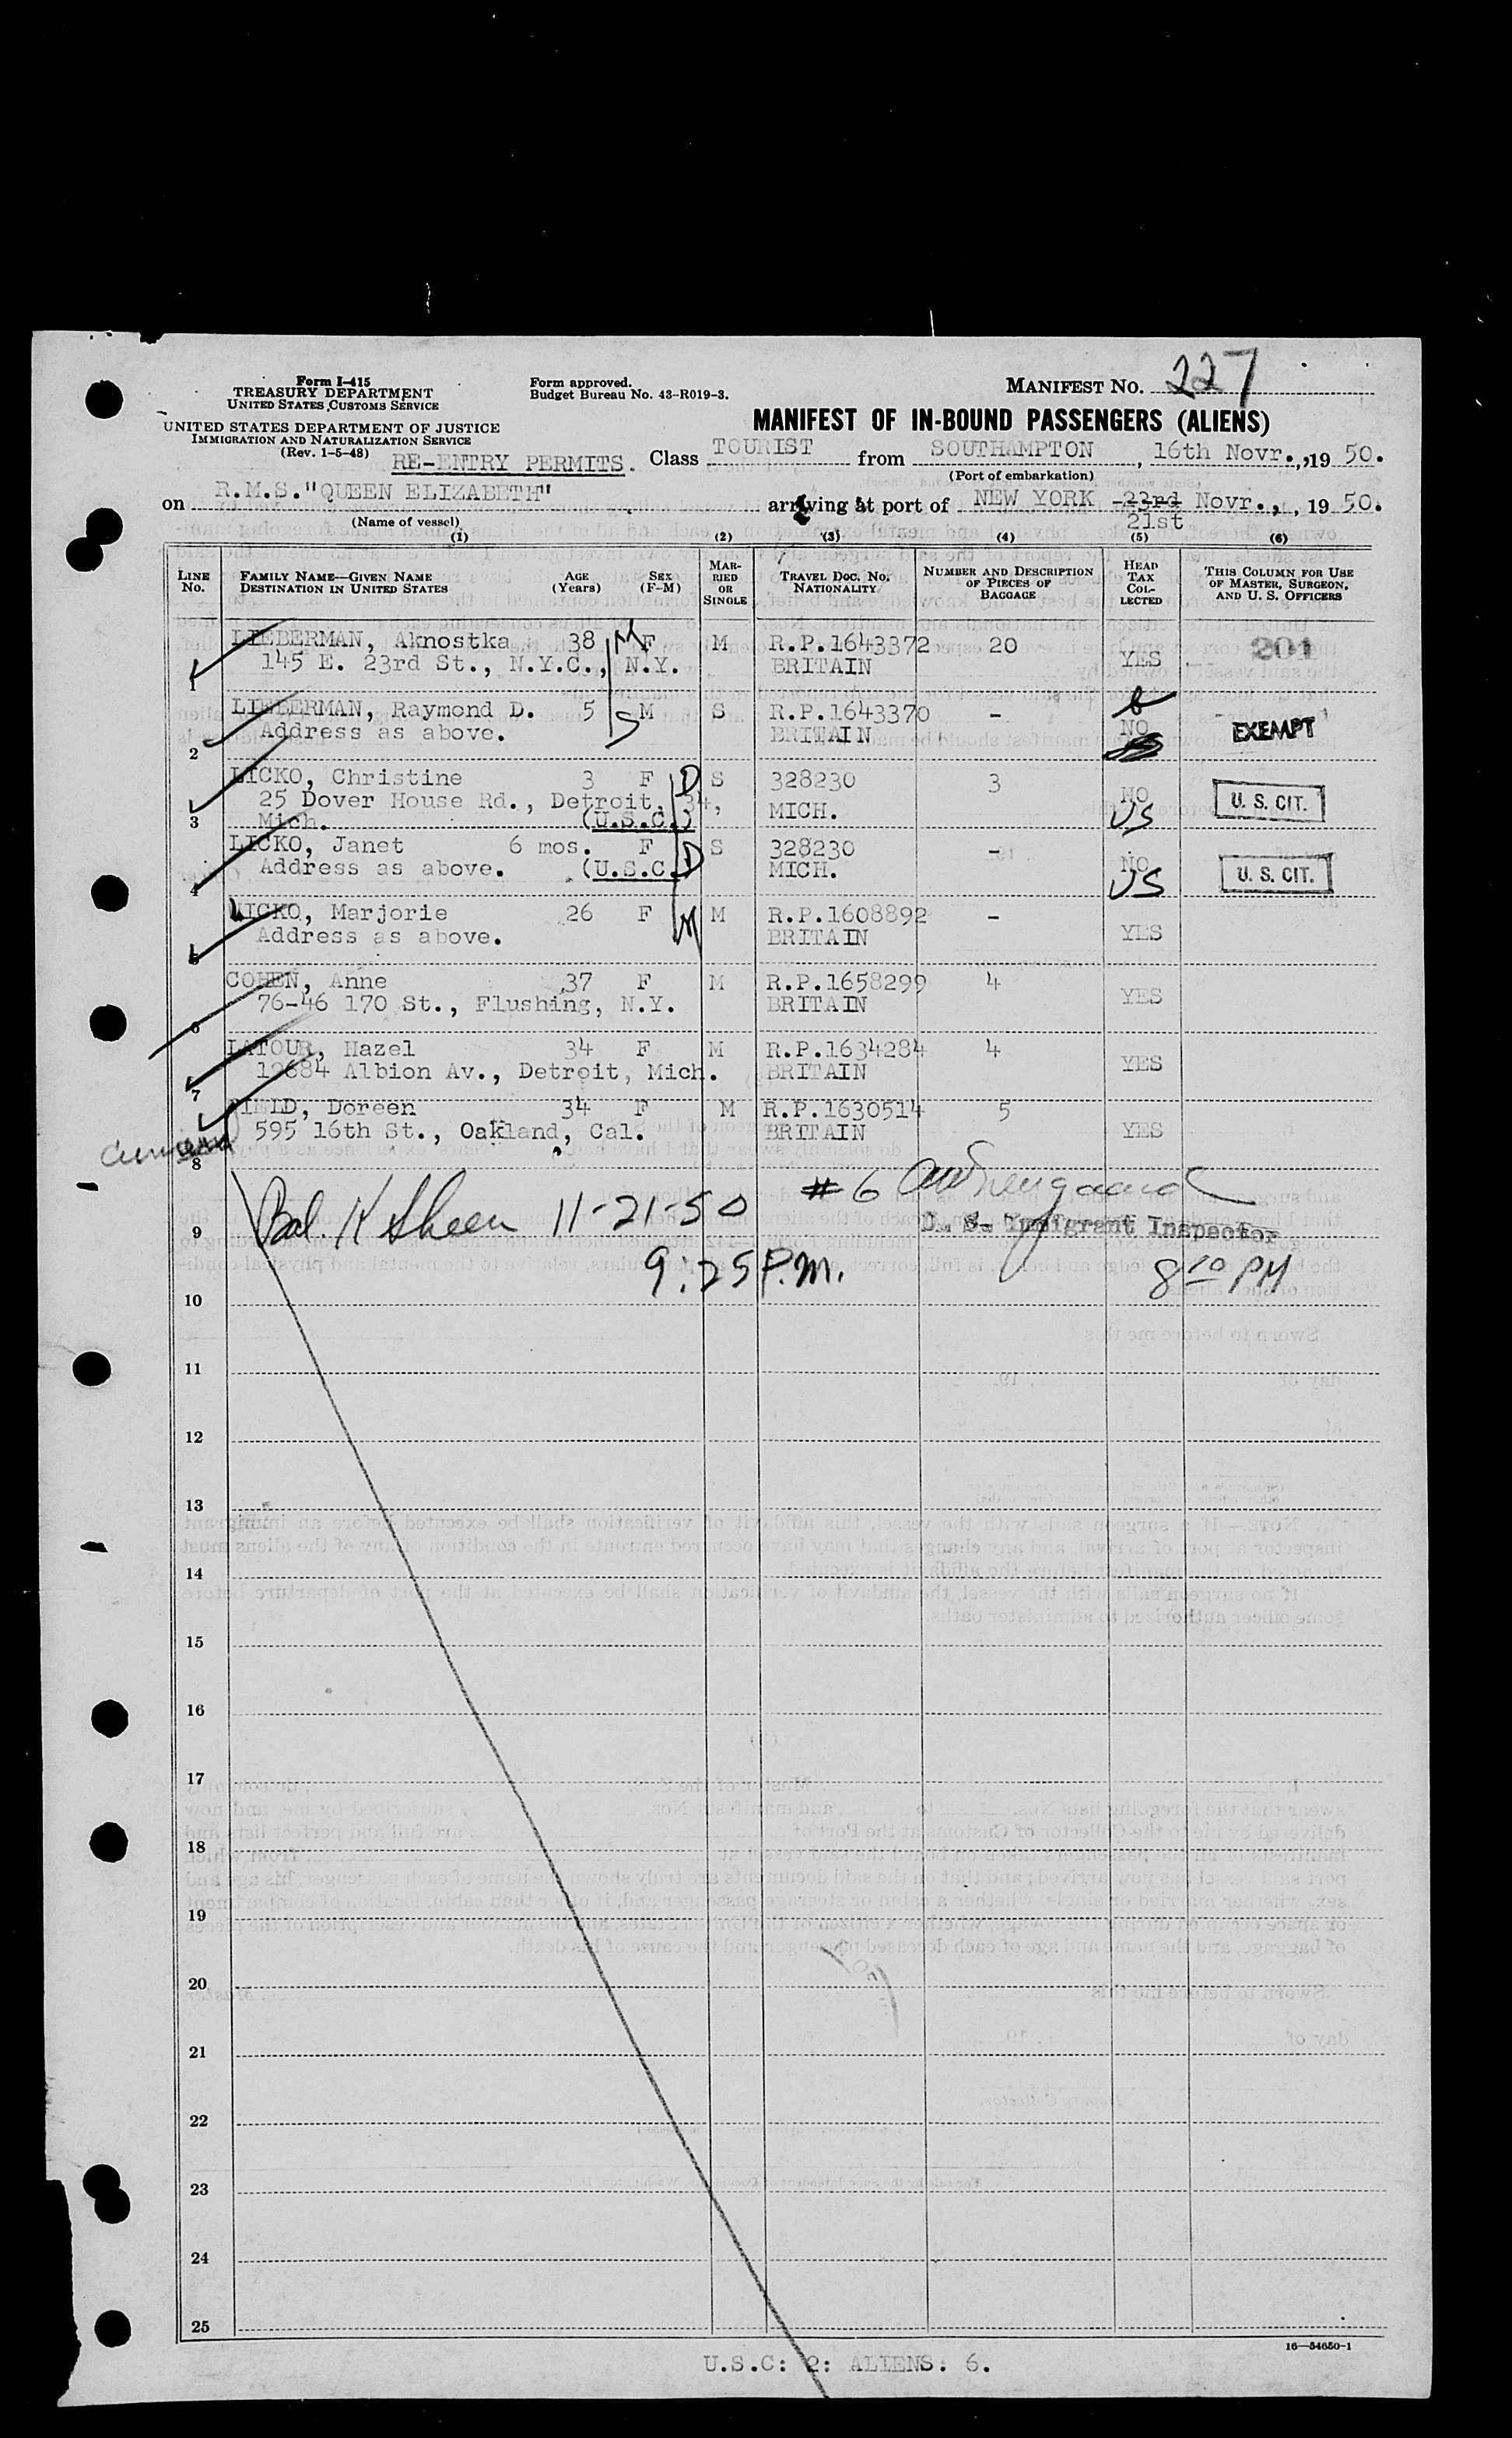 Form I-415
TREASURY DEPARTMENT
UNITED STATES CUSTOMS SERVICE
UNITED STATES DEPARTMENT OF JUSTICE
IMMIGRATION AND NATURALIZATION SERVICE
(Rev. 1-5-48)
Form approved.
Budget Bureau No. 43-R019-3.
MANIFEST NO. 227
MANIFEST OF IN-BOUND PASSENGERS (ALIENS)
RE-ENTRY PERMITS. Class TOURIST from SOUTHAMPTON, 16th Novr., 1950.
(Port of embarkation)
on R.M.S."QUEEN ELIZABETH" arriving at port of NEW YORK 23rd Novr., 1950.
21st
(Name of vessel)
(1) (2) (3) (4) (5) (6)
LINE No. FAMILY NAME—GIVEN NAME DESTINATION IN UNITED STATES AGE (Years) SEX (F-M) MARRIED OR SINGLE TRAVEL DOC. No. NATIONALITY NUMBER AND DESCRIPTION OF PIECES OF BAGGAGE HEAD TAX COLLECTED THIS COLUMN FOR USE OF MASTER, SURGEON, AND U. S. OFFICERS
LIEBERMAN, Aknostka 38 M F M R.P.1643372 20 201
1 145 E. 23rd St., N.Y.C., N.Y. BRITAIN YES
LIEBERMAN, Raymond D. 5 S M S R.P.1643370 -
2 Address as above. BRITAIN NO EXEMPT
LICKO, Christine 3 F D S 328230 3 NO
25 Dover House Rd., Detroit, 34, MICH. US U. S. CIT.
3 Mich. (U.S.C.)
LICKO, Janet 6 mos. F D S 328230 - NO
4 Address as above. (U.S.C.) MICH. US U. S. CIT.
LICKO, Marjorie 26 F M M R.P.1608892 -
5 Address as above. BRITAIN YES
COHEN, Anne 37 F M R.P.1658299 4
6 76-46 170 St., Flushing, N.Y. BRITAIN YES
LATOUR, Hazel 34 F M R.P.1634284 4
7 12684 Albion Av., Detroit, Mich. BRITAIN YES
FIELD, Doreen 34 F M R.P.1630514 5
8 595 16th St., Oakland, Cal. BRITAIN YES
# 6
9 Bal. K Sheen 11-21-50 U. S. Immigrant Inspector
9:25 P.M. 8 10 PM
10
11
12
13
14
15
16
17
18
19
20
21
22
23
24
25
16—54650-1
U.S.C: 2: ALIENS: 6.